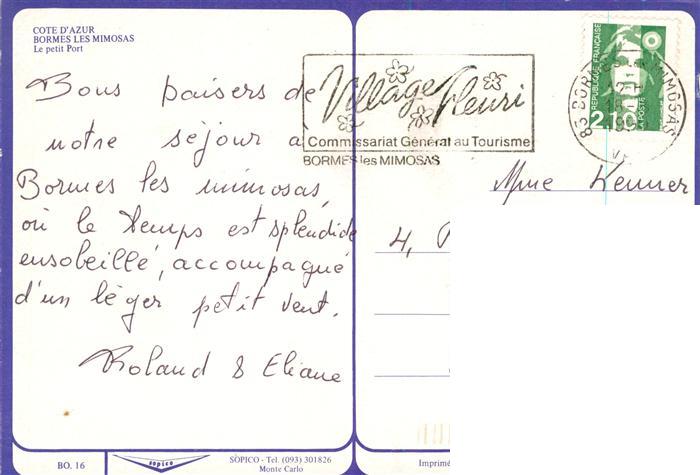 COTE D'AZUR
BORMES LES MIMOSAS
Le petit Port
Bons baisers de
notre séjour a
Bormes les mimosas,
où le temps est splendide
ensoleillé, accompagné
d'un léger petit vent.
Roland & Eliane
BO. 16
sopico
SOPICO - Tel. (093) 301826
Monte Carlo
Village Fleuri
Commissariat Général au Tourisme
BORMES les MIMOSAS
REPUBLIQUE FRANÇAISE
LA POSTE
2,10
83 BORMES LES MIMOSAS
Mme Kenner
4,
Imprimé